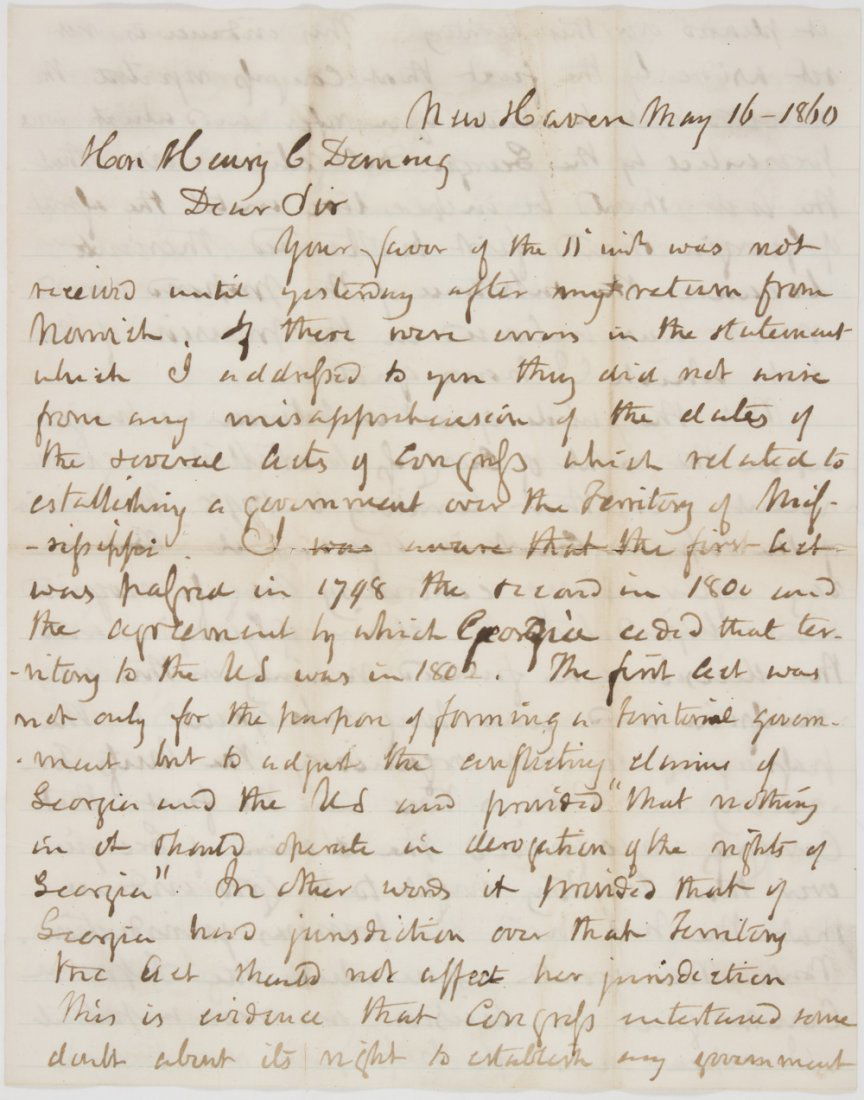 New Haven May 16 - 1860
Hon Henry C Deming
Dear Sir
Your favor of the 11 inst was not
received until yesterday after my return from
Norwich. If there were errors in the statement
which I addressed to you they did not arise
from any misapprehension of the dates of
the several acts of Congress which related to
establishing a government over the Territory of Mis-
-sissippi. I was aware that the first Act
was passed in 1798 the second in 1800 and
the agreement by which Georgia ceded that ter-
-ritory to the US was in 1802. The first Act was
not only for the purpose of forming a territorial govern-
-ment but to adjust the conflicting claims of
Georgia and the US and provided "that nothing
in it should operate in derogation of the rights of
Georgia". In other words it provided that if
Georgia had jurisdiction over that Territory
the Act should not affect her jurisdiction
This is evidence that Congress entertained some
doubt about its right to establish any government